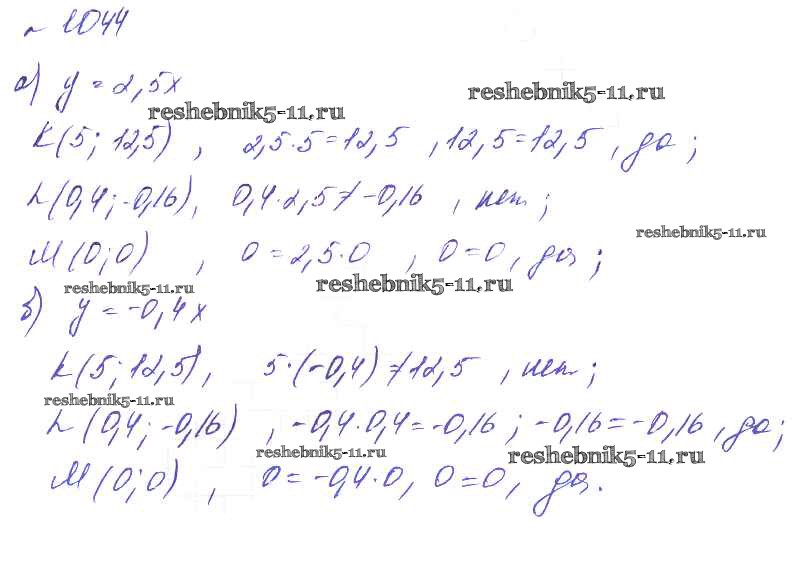 № 1044
а) y = 2,5x
reshebnik5-11.ru
reshebnik5-11.ru
K(5; 12,5) , 2,5·5=12,5 , 12,5=12,5 , да ;
L(0,4; -0,16), 0,4·2,5≠-0,16 , нет ;
reshebnik5-11.ru
M(0;0) , 0=2,5·0 , 0=0, да ;
reshebnik5-11.ru
reshebnik5-11.ru
б) y = -0,4x
K(5; 12,5), 5·(-0,4)≠12,5 , нет ;
reshebnik5-11.ru
L(0,4; -0,16) , -0,4·0,4=-0,16 ; -0,16=-0,16 , да ;
reshebnik5-11.ru
reshebnik5-11.ru
M(0;0) , 0=-0,4·0, 0=0, да.